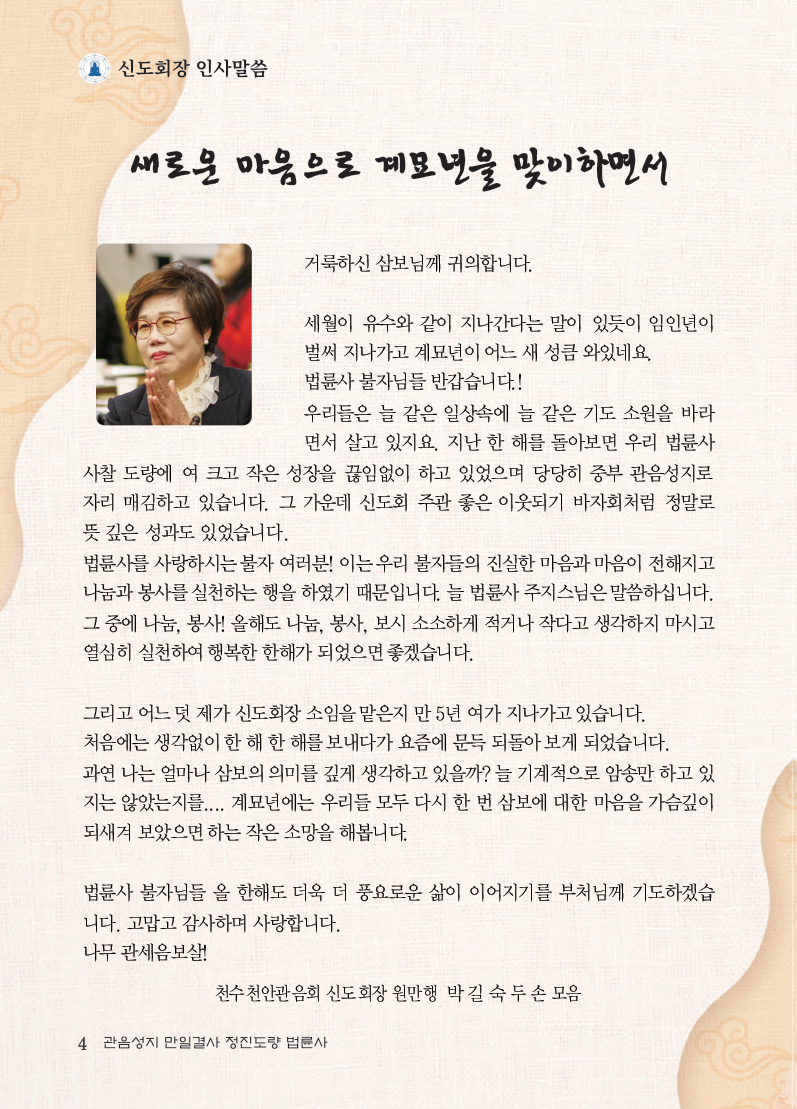 신도회장 인사말씀
새로운 마음으로 계묘년을 맞이하면서
거룩하신 삼보님께 귀의합니다.
세월이 유수와 같이 지나간다는 말이 있듯이 임인년이
벌써 지나가고 계묘년이 어느 새 성큼 와있네요.
법륜사 불자님들 반갑습니다.!
우리들은 늘 같은 일상속에 늘 같은 기도 소원을 바라
면서 살고 있지요. 지난 한 해를 돌아보면 우리 법륜사
사찰 도량에 여 크고 작은 성장을 끊임없이 하고 있었으며 당당히 중부 관음성지로
자리 매김하고 있습니다. 그 가운데 신도회 주관 좋은 이웃되기 바자회처럼 정말로
뜻 깊은 성과도 있었습니다.
법륜사를 사랑하시는 불자 여러분! 이는 우리 불자들의 진실한 마음과 마음이 전해지고
나눔과 봉사를 실천하는 행을 하였기 때문입니다. 늘 법륜사 주지스님은 말씀하십니다.
그 중에 나눔, 봉사! 올해도 나눔, 봉사, 보시 소소하게 적거나 작다고 생각하지 마시고
열심히 실천하여 행복한 한해가 되었으면 좋겠습니다.
그리고 어느 덧 제가 신도회장 소임을 맡은지 만 5년 여가 지나가고 있습니다.
처음에는 생각없이 한 해 한 해를 보내다가 요즘에 문득 되돌아 보게 되었습니다.
과연 나는 얼마나 삼보의 의미를 깊게 생각하고 있을까? 늘 기계적으로 암송만 하고 있
지는 않았는지를.... 계묘년에는 우리들 모두 다시 한 번 삼보에 대한 마음을 가슴깊이
되새겨 보았으면 하는 작은 소망을 해봅니다.
법륜사 불자님들 올 한해도 더욱 더 풍요로운 삶이 이어지기를 부처님께 기도하겠습
니다. 고맙고 감사하며 사랑합니다.
나무 관세음보살!
천수천안관음회 신도회장 원만행 박 길 숙 두 손 모음
4 관음성지 만일결사 정진도량 법륜사